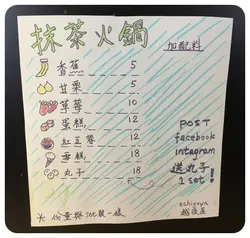 抹茶火鍋
加配料
香蕉 5
甘栗 5
草莓 10
蛋糕 12
紅豆蓉 12
雪糕 18
丸子 18
POST
facebook
intagram
送丸子
1 set!
echigoya
越後屋
份量與set裝一樣